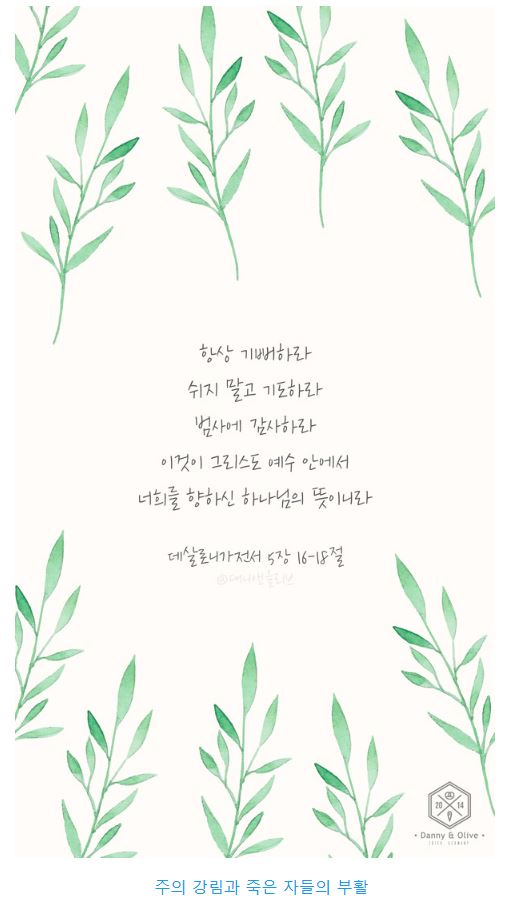 항상 기뻐하라
쉬지 말고 기도하라
범사에 감사하라
이것이 그리스도 예수 안에서
너희를 향하신 하나님의 뜻이니라
데살로니가전서 5장 16-18절
@대니앤올리브
20 14
• Danny & Olive •
주의 강림과 죽은 자들의 부활